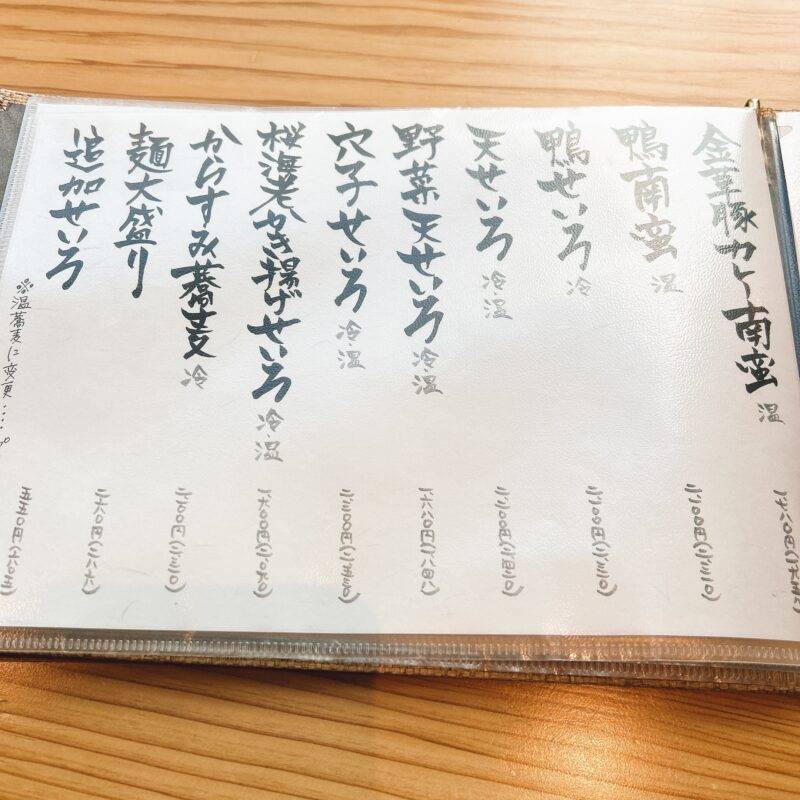 金華豚カレー南蛮 温 一七八〇円(一九五八)
鴨南蛮 温 二一〇〇円(二三一〇)
鴨せいろ 冷 二一〇〇円(二三一〇)
天せいろ 冷・温 二二〇〇円(二四二〇)
野菜天せいろ 冷・温 一六八〇円(一八四八)
穴子せいろ 冷・温 二三〇〇円(二五三〇)
桜海老かき揚げせいろ 冷・温 一九〇〇円(二〇九〇)
からすみ蕎麦 冷 二一〇〇円(二三一〇)
麺大盛り 二六〇円(二八六)
追加せいろ 五五〇円(六〇五)
※温蕎麦に変更....プ